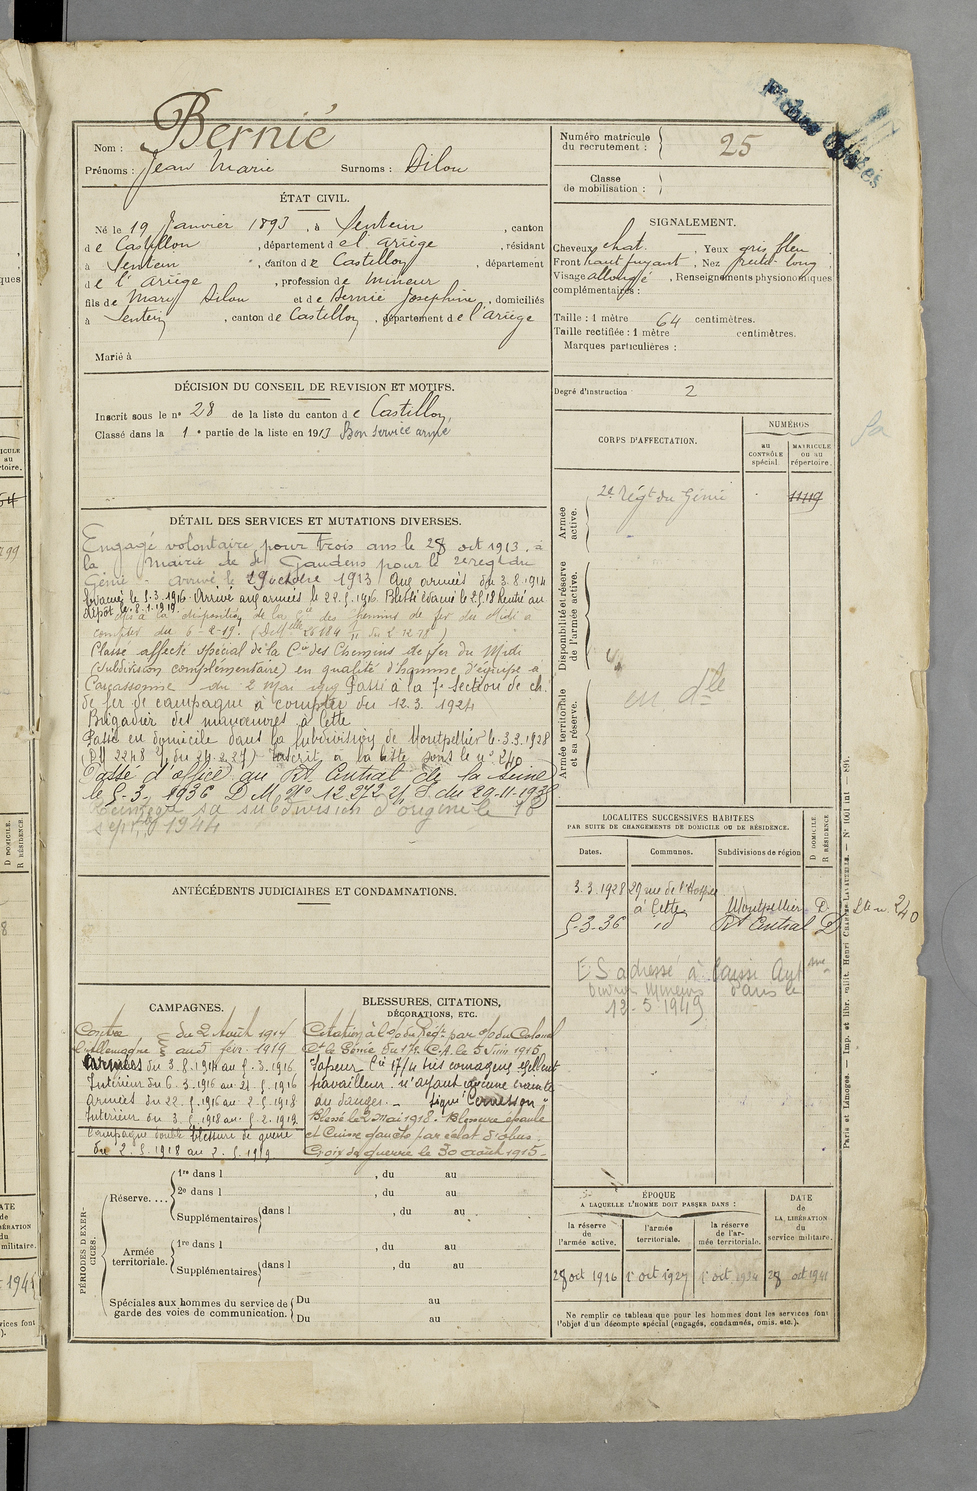 Fiches Postes
Nom : Bernié
Prénoms : Jean Marie Surnoms : Dilou
Numéro matricule du recrutement : 25
Classe de mobilisation :
ÉTAT CIVIL.
Né le 19 Janvier 1893, à Sentein, canton
de Castillon, département de l'Ariège, résidant
à Sentein, canton de Castillon, département
de l'Ariège, profession de Mineur
fils de Mary Dilou et de Bernié Joséphine, domiciliés
à Sentein, canton de Castillon, département de l'Ariège
Marié à
SIGNALEMENT.
Cheveux chat. Yeux gris bleu
Front haut fuyant, Nez rectil. long
Visage allongé, Renseignements physionomiques
complémentaires :
Taille : 1 mètre 64 centimètres.
Taille rectifiée : 1 mètre centimètres.
Marques particulières :
Degré d'instruction 2
DÉCISION DU CONSEIL DE REVISION ET MOTIFS.
Inscrit sous le n° 28 de la liste du canton de Castillon,
Classé dans la 1e partie de la liste en 1913 Bon service armé
CORPS D'AFFECTATION.
NUMÉROS
au CONTRÔLE spécial.
MATRICULE ou au répertoire.
Armée active.
2e Régt du Génie 11119
Disponibilité et réserve de l'armée active.
Armée territoriale et sa réserve.
DÉTAIL DES SERVICES ET MUTATIONS DIVERSES.
Engagé volontaire pour trois ans le 28 oct 1913. à
la Mairie de St Gaudens pour le 2e regt du
Génie - arrivé le 29 octobre 1913. Aux armées du 3.8.1914
Evacué le 5.3.1916. Arrivé aux armées le 22.5.1916. Blessé évacué le 2.5.18 Rentré au
dépôt le 8.1.1919
mis à la disposition de la Cie des Chemins de fer du Midi à
compter du 6-2-19.
Classé affecté spécial de la Cie des Chemins de fer du Midi
(subdivision complémentaire) en qualité d'homme d'équipe à
Carcassonne du 2 Mai 1919 Passé à la 7e section de ch.
de fer de campagne à compter du 12.3.1924
Brigadier des manœuvres à Cette
Passé en domicile dans la subdivision de Montpellier le 3.3.1928
Inscrit à la liste sous le n° 240
Passé d'office au Rt Central de la Seine
le 5-3-1936 D.M. N° 12.272 du 29-11-1935
Réintégré sa subdivision d'origine le 18
sept. 1944
ANTÉCÉDENTS JUDICIAIRES ET CONDAMNATIONS.
LOCALITÉS SUCCESSIVES HABITÉES
PAR SUITE DE CHANGEMENTS DE DOMICILE OU DE RÉSIDENCE.
Dates. Communes. Subdivisions de région D DOMICILE. R RÉSIDENCE.
3.3.1928 29 rue de l'Hospice à Cette Montpellier D. Lte n° 240
5-3-36 id Rt Central D
E S adressé à
Paris le
12-5-1949
CAMPAGNES.
Contre l'Allemagne du 2 Août 1914
au 5 févr. 1919
Armées du 3.8.1914 au 5.3.1916
Intérieur du 6.3.1916 au 21.5.1916
Armées du 22.5.1916 au 2.5.1918
Intérieur du 3.5.1918 au 5.2.1919
Campagne double blessure de guerre
du 2.5.1918 au 2.5.1919
BLESSURES, CITATIONS, DÉCORATIONS, ETC.
Citation à l'o/ du Régt par o/ du Colonel
Ct le Génie du 17e C.A. le 5 Juin 1915.
Sapeur Cie 17/4 très courageux, excellent
travailleur n'ayant aucune crainte
du danger. - Signé
Blessé le 2 Mai 1918. Blessure épaule
et Cuisse gauche par éclat d'obus.
Croix de guerre le 30 août 1915.
PÉRIODES D'EXERCICES.
Réserve.... 1re dans l , du au
2e dans l , du au
Supplémentaires dans l , du au
Armée territoriale. 1re dans l , du au
Supplémentaires dans l , du au
Spéciales aux hommes du service de garde des voies de communication. Du au
Du au
ÉPOQUE
A LAQUELLE L'HOMME DOIT PASSER DANS :
la réserve de l'armée active.
l'armée territoriale.
la réserve de l'armée territoriale.
DATE de LA LIBÉRATION du service militaire.
28 oct 1916 1er oct 1927 1er oct 1934 28 oct 1941
Ne remplir ce tableau que pour les hommes dont les services font
l'objet d'un décompte spécial (engagés, condamnés, omis, etc.).
Paris et Limoges. — Imp. et libr. milit. Henri CHARLES-LAVAUZELLE. — N° 1061 int — 891.